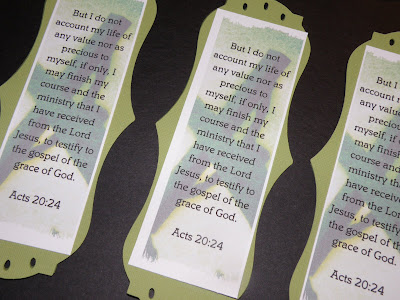 But I do not
account my life of
any value nor as
precious to
myself, if only, I
may finish my
course and the
ministry that I
have received
from the Lord
Jesus, to testify to
the gospel of the
grace of God.
Acts 20:24
But I do not
account my life of
any value nor as
precious to
myself, if only, I
may finish my
course and the
ministry that I
have received
from the Lord
Jesus, to testify to
the gospel of the
grace of God.
Acts 20:24
But I do
account my
any value
precious
myself, if
may finish
course and
ministry
have received
from the Lord
Jesus, to
the gospel of
grace of God.
Acts 20:24